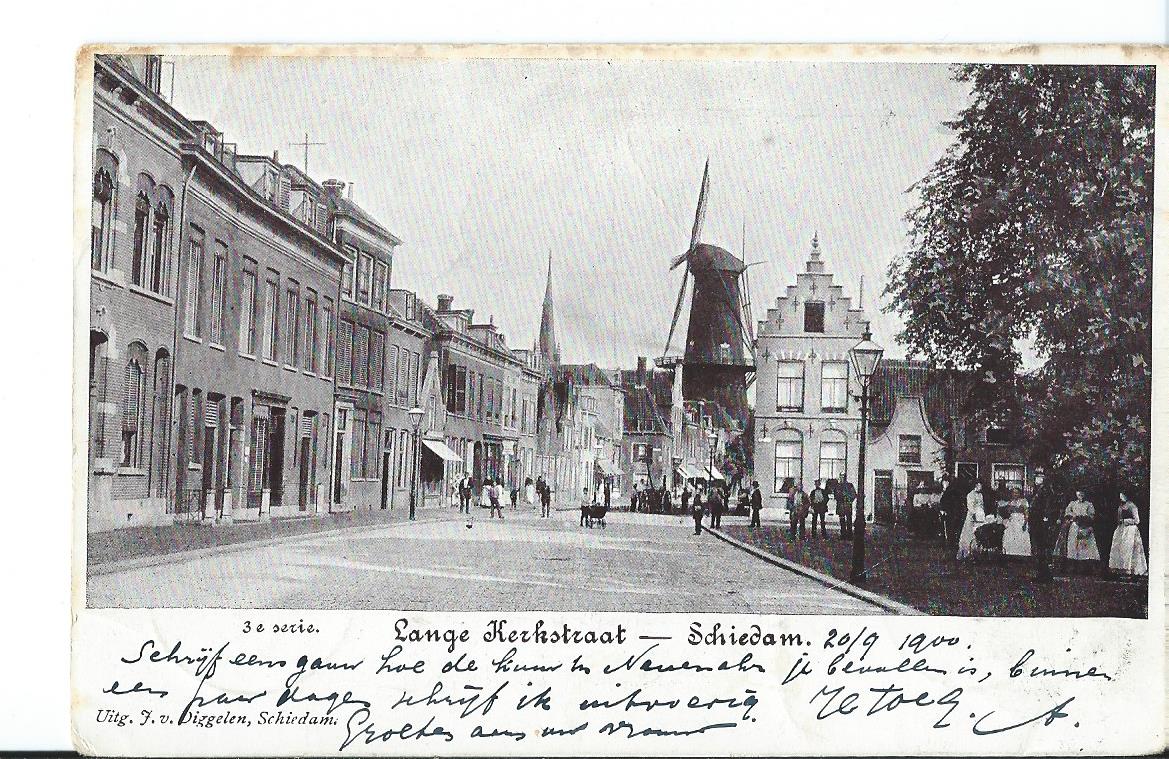 3e serie.
Lange Kerkstraat — Schiedam. 20/9 1900.
Schrijf eens gauw hoe de kuur in Neuenahr je bevallen is, binnen
een paar dagen schrijf ik uitvoerig.
Uitg. J. v. Diggelen, Schiedam.
Groeten aan uw vrouw